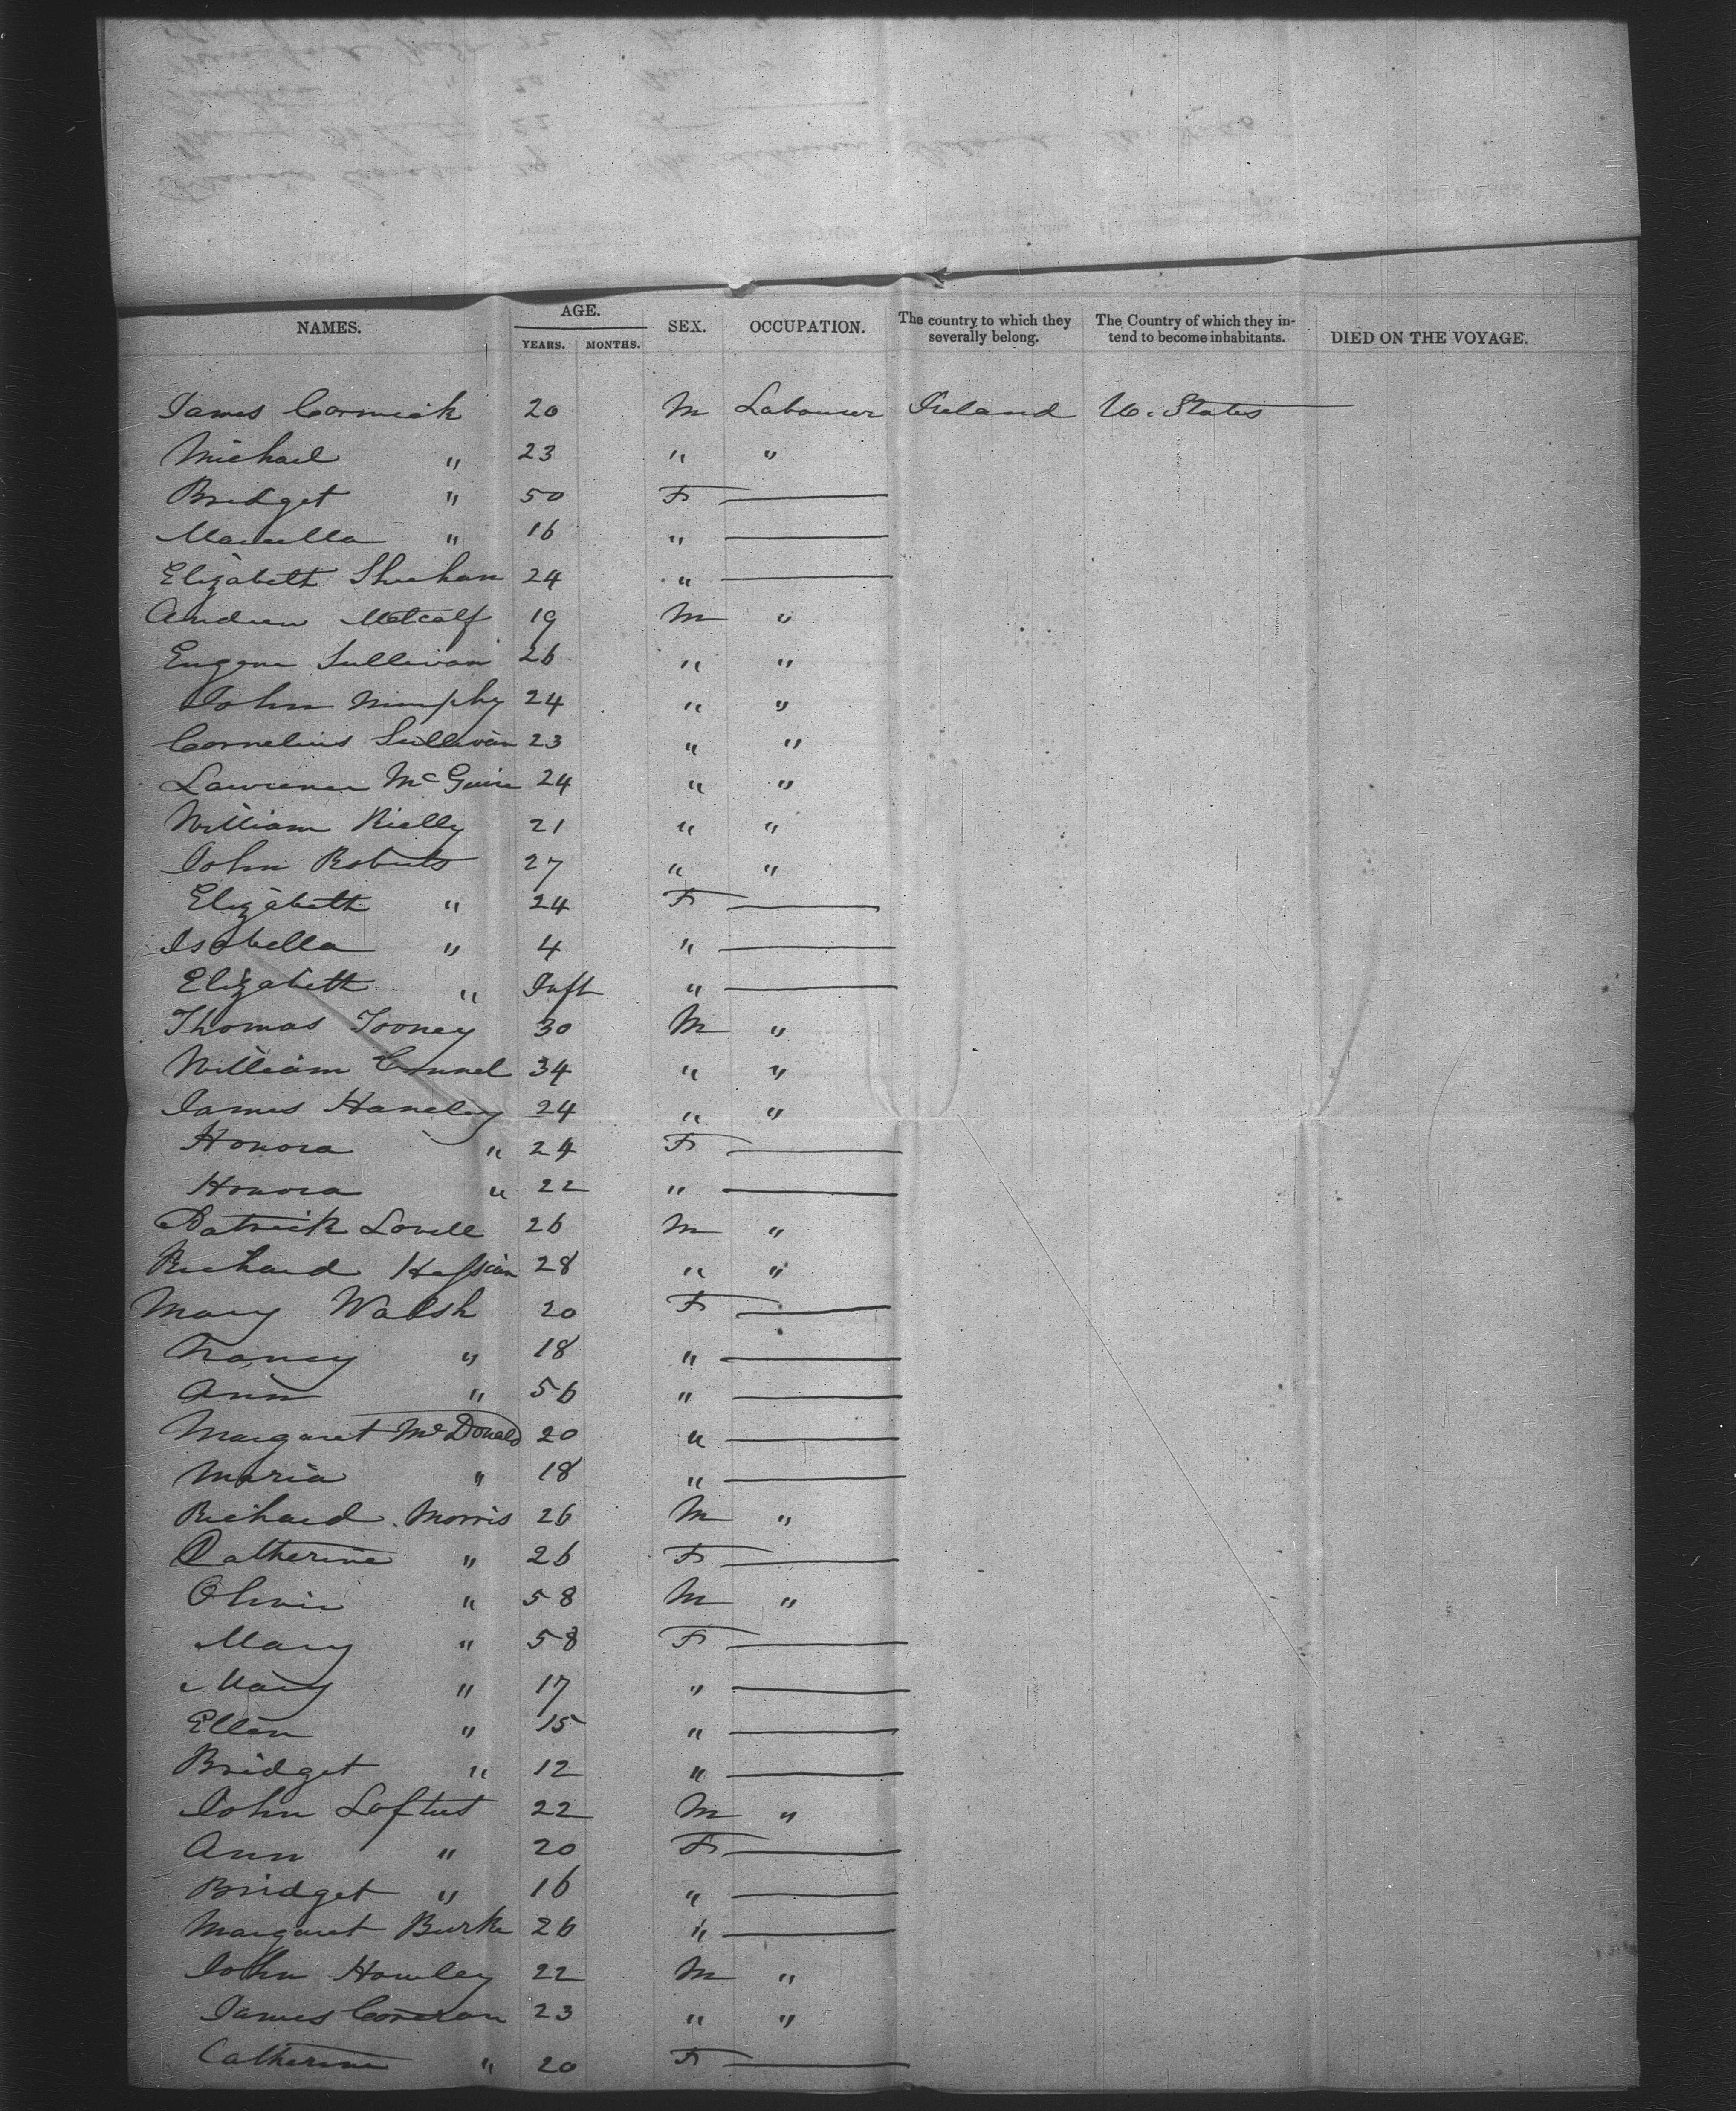 NAMES. AGE. YEARS. MONTHS. SEX. OCCUPATION. The country to which they severally belong. The Country of which they intend to become inhabitants. DIED ON THE VOYAGE.
James Cormick 20 M Labourer Ireland U. States
Michael " 23 " "
Bridget " 50 F
Marcella " 16 "
Elizabeth Sheehan 24 "
Andrew Metcalf 19 M "
Eugene Sullivan 26 " "
John Murphy 24 " "
Cornelius Sullivan 23 " "
Lawrence McGuire 24 " "
William Rielly 21 " "
John Roberts 27 " "
Elizabeth " 24 F
Isabella " 4 "
Elizabeth " Inft "
Thomas Tooney 30 M "
William Connel 34 " "
James Haneley 24 " "
Honora " 24 F
Honora " 22 "
Patrick Lovell 26 M "
Richard Hession 28 " "
Mary Walsh 20 F
Nancy " 18 "
Ann " 56 "
Margaret McDonald 20 "
Maria " 18 "
Richard Morris 26 M "
Catherine " 26 F
Oliver " 58 M "
Mary " 58 F
Mary " 17 "
Ellen " 15 "
Bridget " 12 "
John Loftus 22 M "
Ann " 20 F
Bridget " 16 "
Margaret Burke 26 "
John Howley 22 M "
James Corcoran 23 " "
Catherine " 20 F